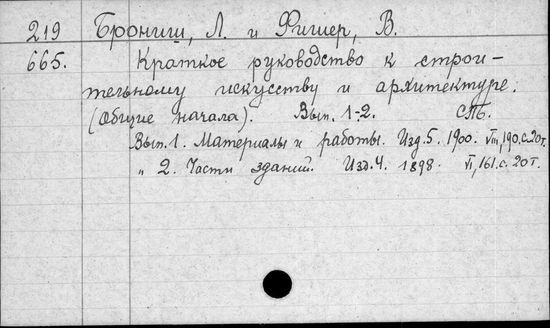 219 Брониш, Л. и Фишер, В.
665. Краткое руководство к строи-
тельному искусству и архитектуре.
(Общие начала). Вып. 1-2. СПБ.
Вып. 1. Материалы и работы. Изд. 5. 1900. VIII, 190. с. 20т.
" 2. Части зданий. Изд. 4. 1898. VI, 161. с. 20т.